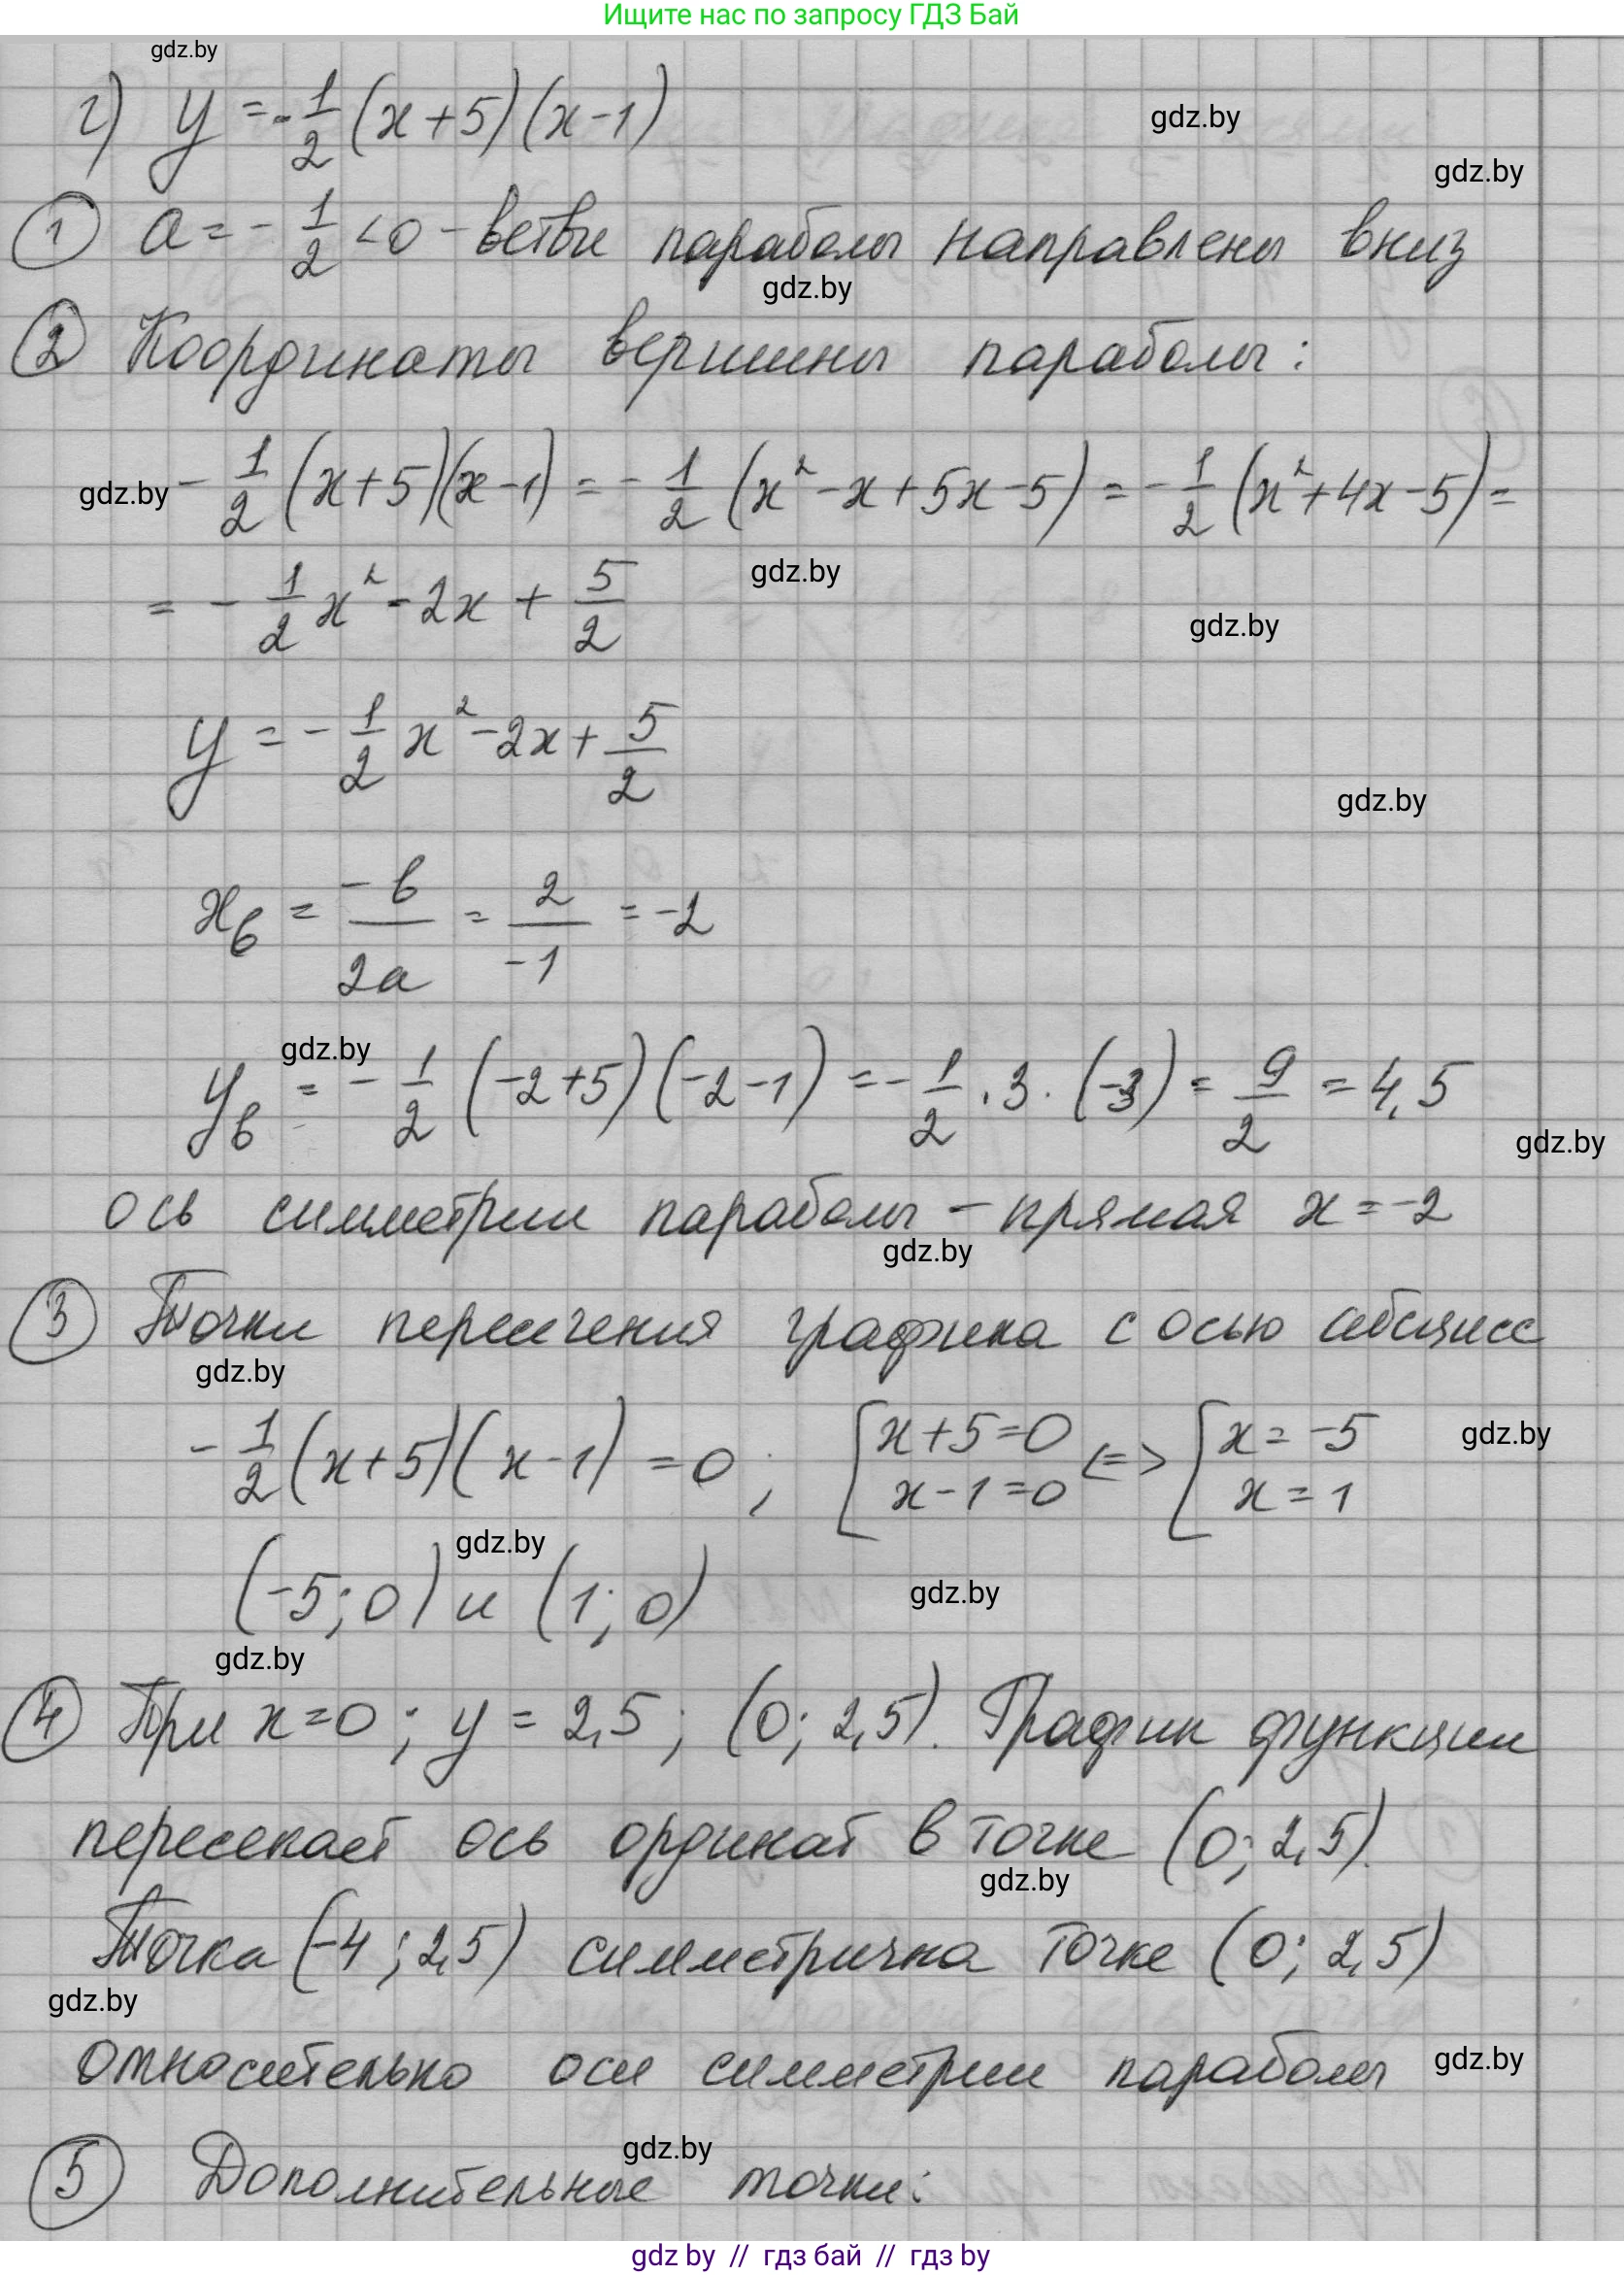 Ищите нас по запросу ГДЗ Бай
gdz.by
г) y = -1/2 (x+5)(x-1)
gdz.by
gdz.by
① a = -1/2 < 0 - ветви параболы направлены вниз
gdz.by
② Координаты вершины параболы:
gdz.by -1/2 (x+5)(x-1) = -1/2 (x²-x+5x-5) = -1/2 (x²+4x-5) =
gdz.by
= -1/2 x² - 2x + 5/2
gdz.by
y = -1/2 x² - 2x + 5/2
gdz.by
xв = -b/2a = 2/-1 = -2
gdz.by
yв = -1/2 (-2+5)(-2-1) = -1/2 · 3 · (-3) = 9/2 = 4,5
gdz.by
ось симметрии параболы - прямая x = -2
gdz.by
③ Точки пересечения графика с осью абсцисс
gdz.by
-1/2 (x+5)(x-1) = 0; [x+5=0 x-1=0 <=> [x=-5 x=1
gdz.by
gdz.by
(-5;0) и (1;0)
gdz.by
gdz.by
④ При x=0; y = 2,5; (0; 2,5). График функции
пересекает ось ординат в точке (0; 2,5).
gdz.by
Точка (-4; 2,5) симметрична точке (0; 2,5)
gdz.by
относительно оси симметрии параболы
gdz.by
gdz.by
⑤ Дополнительные точки:
gdz by // гдз бай // гдз by